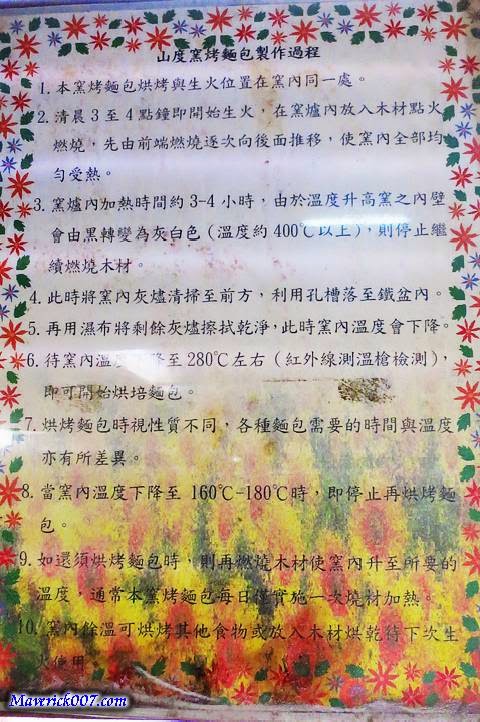 山度窯烤麵包製作過程
1. 本窯烤麵包烘烤與生火位置在窯內同一處。
2. 清晨 3 至 4 點鐘即開始生火，在窯爐內放入木材點火
燃燒，先由前端燃燒逐次向後面推移，使窯內全部均
勻受熱。
3. 窯爐內加熱時間約 3-4 小時，由於溫度升高窯之內壁
會由黑轉變為灰白色（溫度約 400℃以上），則停止繼
續燃燒木材。
4. 此時將窯內灰燼清掃至前方，利用孔槽落至鐵盆內。
5. 再用濕布將剩餘灰燼擦拭乾淨，此時窯內溫度會下降。
6. 待窯內溫度下降至 280℃左右（紅外線測溫槍檢測），
即可開始烘培麵包。
7. 烘烤麵包時視性質不同，各種麵包需要的時間與溫度
亦有所差異。
8. 當窯內溫度下降至 160℃-180℃時，即停止再烘烤麵
包。
9. 如還須烘烤麵包時，則再燃燒木材使窯內升至所要的
溫度，通常本窯烤麵包每日僅實施一次燒材加熱。
10. 窯內餘溫可烘烤其他食物或放入木材烘乾待下次生
火使用
Maverick007.com